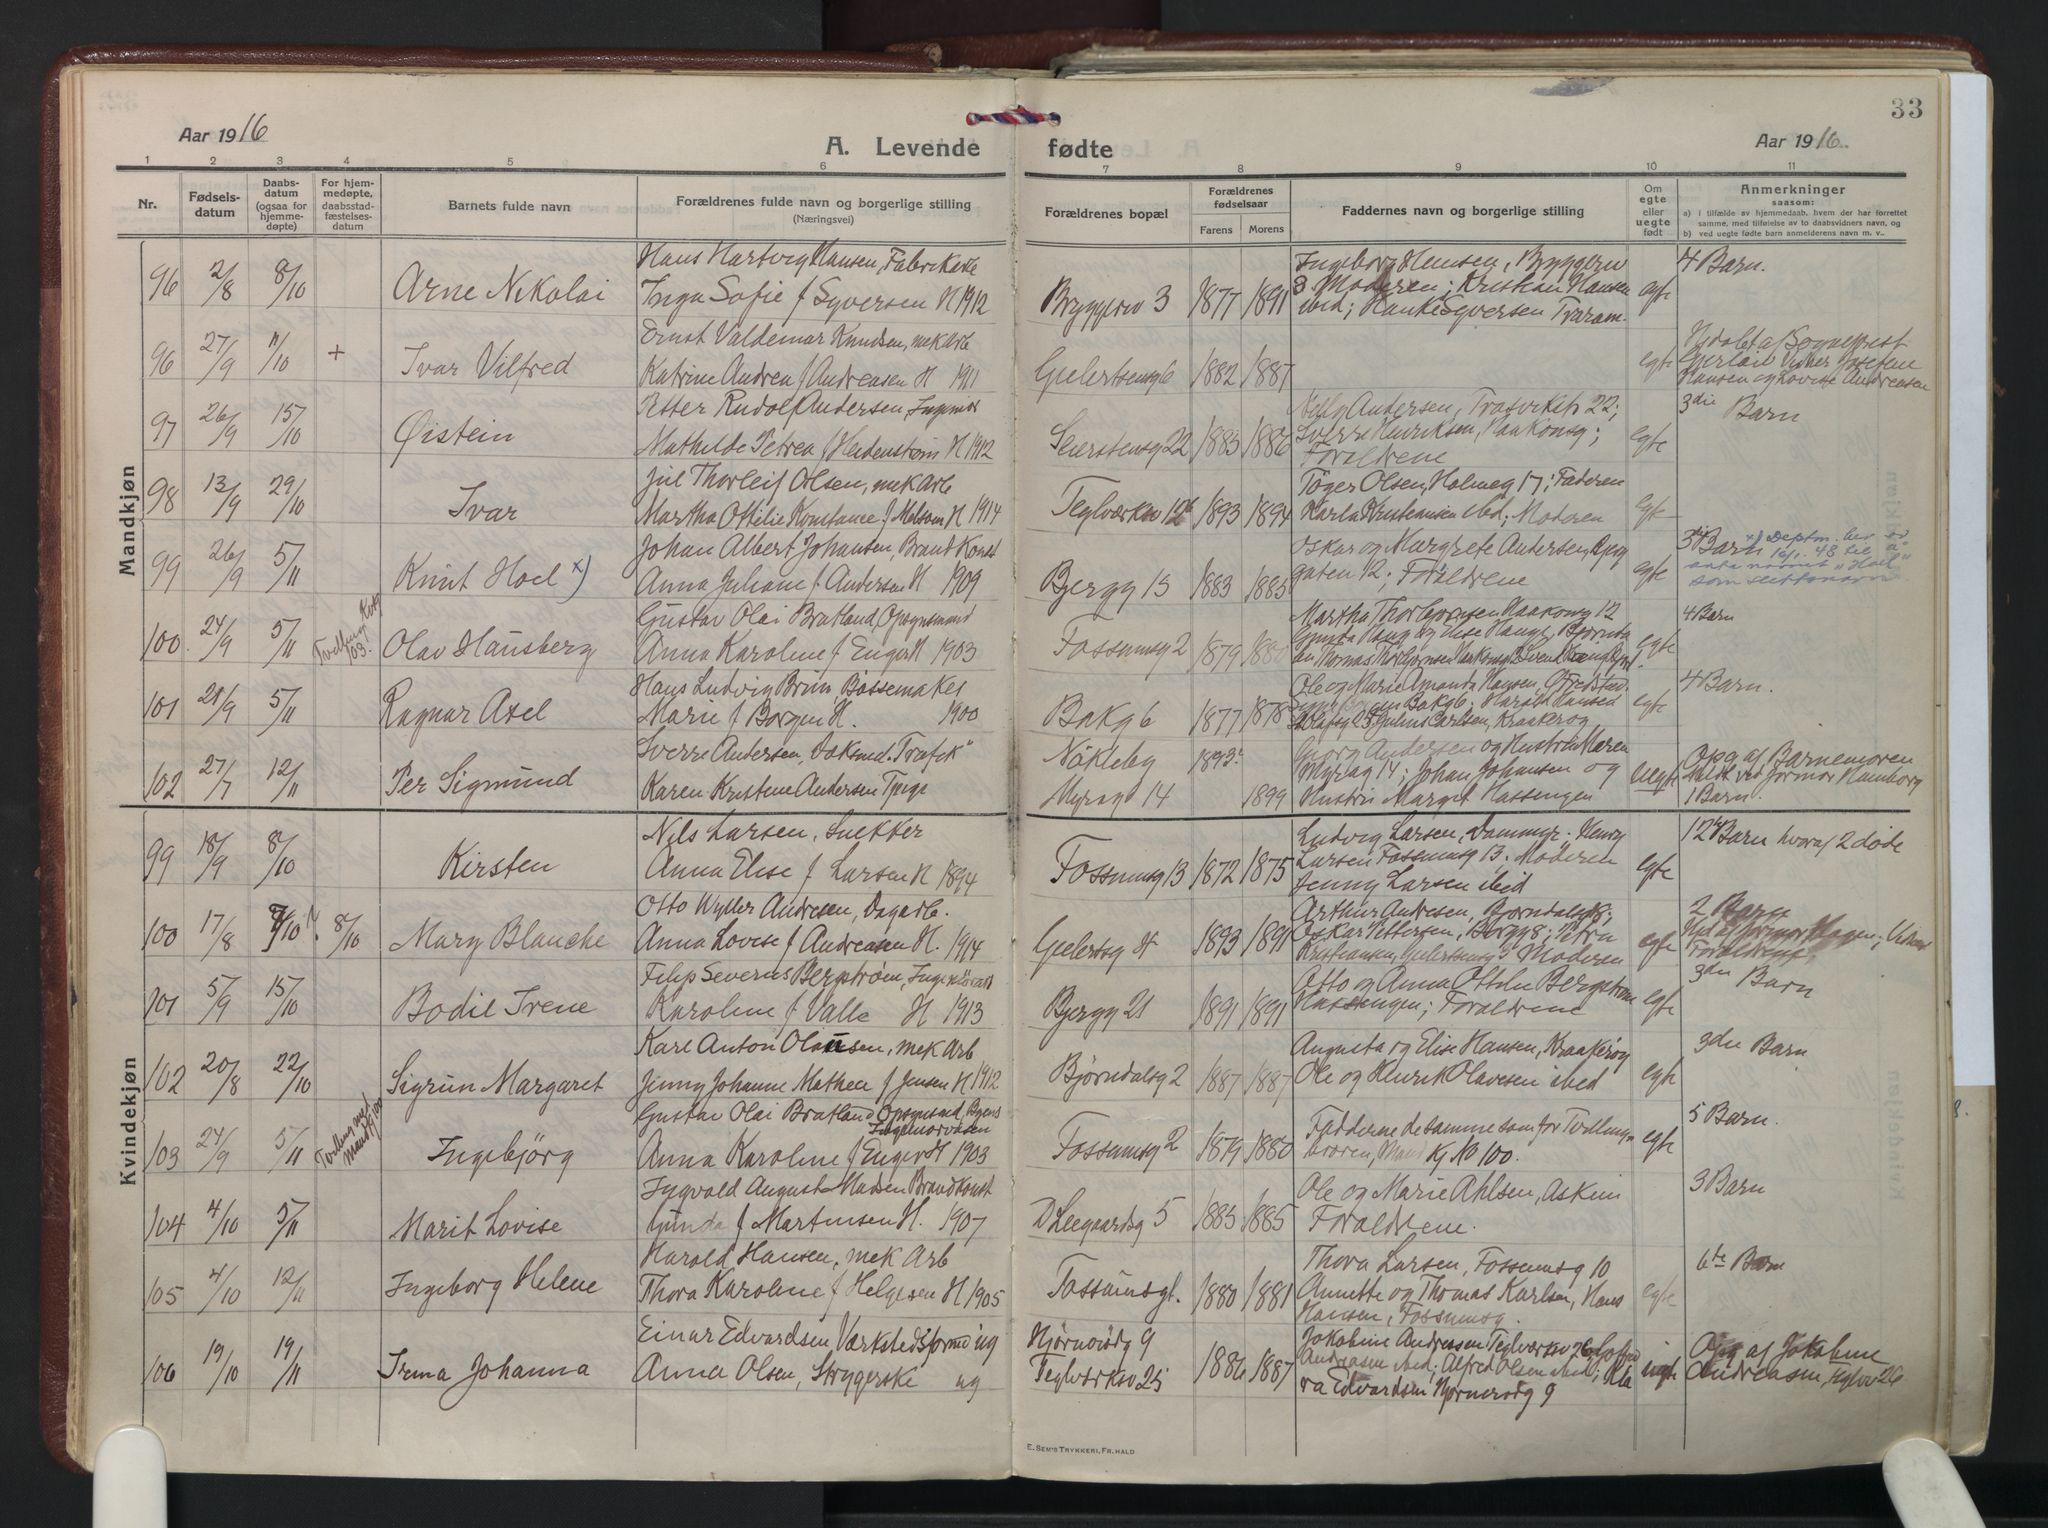 33
Aar 1916
A. Levende fødte
Aar 1916
1 2 3 4 5 6 7 8 9 10 11
Nr.
Fødsels-
datum
Daabs-
datum
(ogsaa for
hjemme-
døpte)
For hjem-
medøpte,
daabsstad-
fæstelses-
datum
Barnets fulde navn
Forældrenes fulde navn og borgerlige stilling
(Næringsvei)
Forældrenes bopæl
Forældrenes
fødselsaar
Farens Morens
Faddernes navn og borgerlige stilling
Om
egte
eller
uegte
født
Anmerkninger
saasom:
a) i tilfælde av hjemmedaab, hvem der har forrettet
samme, med tilføielse av to daabsvidners navn, og
b) ved uegte fødte barn anmelderens navn m. v..
Mandkjøn
96 2/8 8/10 Arne Nikolai
Hans Hartvig Hansen, Fabrik
Inga Sofie f Syversen H 1912
Bryggerv 3 1877 1891
Ingeborg Hansen, Bryggerv
3 Moderen; Kristian Hansen
ibid; Syversen
egte
4 Barn.
96 27/9 11/10 + Ivar Vilfred
Ernst Valdemar Knudsen, mek Arb
Katrine Andrea f Andreasen H 1911
Gielertsensg 6 1882 1887
egte
Sogneprest
Hansen og Lovise Andreasen
97 26/9 15/10 Øistein
Petter Rudolf Andersen, Ingeniør
Mathilde Petrea f Heidenstrøm H 1912
Seierstensg 22 1883 1886
Nelly Andersen, Trosvikstr 22;
Sverre Henriksen, Haakonsg;
Forældrene
egte
3die Barn
98 13/9 29/10 Ivar
Jul Thorleif Olsen, mek Arb
Martha Ottilie Konstance f Melsom H 1914
Teglverksv 1893 1894
Olsen, Holmeg 17; Faderen
Karla Kristiansen ibid; Moderen
egte
99 26/9 5/11 Knut Hoel x)
Johan Albert Johansen, Brand Konst
Anna Juliane f Andersen H 1909
Bjergg 15 1883 1885
Oskar og Margrete Andersen,
gaten 12; Forældrene
egte
3die Barn x) Deptm. bev. av
16/1. 48 til å
anta navnet "Hoel"
som slektsnavn
100. 24/9 5/11 Tvilling Kvkj
103.
Olav Hausberg
Gustav Olai Bratland, Opsynsmand
Anna Karoline f Enger H 1903
Fossumsg 2 1879 1880
Martha Thorbjørnsen Haakonsg 12
Haug og Elise Haug,
Thomas Thorbjørnsen
egte
4 Barn
101 28/9 5/11 Ragnar Axel
Hans Ludvig Brun Bøssemaker
Marie f Borgen H. 1900
Bakg 6 1877 1878
Ole og Marie Amanda Hansen, Gl Fredstad.
Bakg 6; Harald Hansen
Julius Carlsen, Kraakerøy
egte
4 Barn.
102 27/7 12/11 Per Sigmund
Sverre Andersen, Dæksmd. "Trafik"
Karen Kristine Andersen Tpige
Nøkleby 1893.
Myrag 14 1899
Georg Andersen og Hustru Maren
Myrag 14; Johan Johansen og
Hustru Margit Hassengen
uegte
Opg af Barnemoren
Meldt ved Jormor Hamborg
1 Barn.
Kvindekjøn
99 18/9 8/10 Kirsten
Nils Larsen, Snekker
Anna Elise f Larsen H 1894
Fossumsg 13 1872 1875
Ludvig Larsen, Dammyr. Henry
Larsen Fossumsg 13. Moderen
Jenny Larsen ibid
egte
12te Barn hvoraf 2 døde
100 17/8 8/10 Mary Blanche
Otto Wyller Andresen, Dagarb.
Anna Lovise f Andreasen H. 1914
Gielertsg 1893 1891
Arthur Andresen, Bjørndalsg 8;
Oskar Pettersen, Borgg 8; Petra
Kristiansen, Gielertsensg 5 Moderen
egte
2 Barn
Jormor Hagen;
Forældrene
101 5/9 15/10 Bodil Irene
Filip Severus Bergstrøm,
Karoline f Valle H 1913
Bjergg 21 1891 1891
Otto og Anna Ottilie Bergstrøm
Hassengen; Forældrene
egte
3die Barn
102 20/8 22/10 Sigrun Margaret
Karl Anton Olausen, mek Arb
Jenny Johanne Mathea f Jensen H 1912
Bjørndalsg 2 1887 1887
Augusta og Elise Hansen, Kraakerøy
Ole og Henrik Olavesen ibid
egte
3die Barn
103 24/9 5/11 Tvilling med
Mandkj 100
Ingebjörg
Gustav Olai Bratland Opsynsmd, Byens
Ingeniørvæsen
Anna Karoline f Enger H 1903
Fossumsg 2 1879 1880
Fadderne de samme som for Tvilling-
broren, Mand kj No 100.
egte
5 Barn.
104 4/10 5/11 Marit Lovise
Ingvald August Madsen Brandkonst
Gunda f Martinsen H. 1907
D Leegaardsg 5 1885 1885
Ole og Marie Ahlsen, Askim
Forældrene.
3 Barn
105 4/10 12/11 Ingeborg Helene
Harald Hansen, mek Arb
Thora Karoline f Helgesen H 1905
Fossumsg 1. 1880 1881
Thora Larsen, Fossumsg 10
Annette og Thomas Karlsen, Hans
Hansen, Fossumsg.
egte
6te Barn
106 19/10 19/11 Irma Johanna
Einar Edvardsen Værkstedsformd ug
Anna Olsen, Strygerske ug
Hjørnerødg 9
Teglværksv 25 1886 1887
Jakobine Andreasen Teglværksv 26
Andreasen ibid; Alfred Olsen ibid; Kla
ra Edvardsen Hjørnerødg 9
uegte
Opg af Jakobine
Andreasen, Teglv 26
E. SEM'S TRYKKERI, FR. HALD